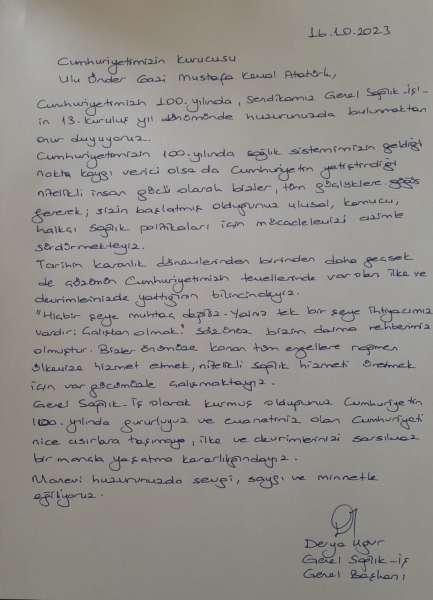 16.10.2023
Cumhuriyetimizin Kurucusu
Ulu Önder Gazi Mustafa Kemal Atatürk,
Cumhuriyetimizin 100. yılında, Sendikamız Genel Sağlık-İş'-
in 13. kuruluş yıl dönümünde huzurunuzda bulunmaktan
onur duyuyoruz.
Cumhuriyetimizin 100. yılında sağlık sistemimizin geldiği
nokta kaygı verici olsa da Cumhuriyetin yetiştirdiği
nitelikli insan gücü olarak bizler, tüm güçlüklere göğüs
gererek; sizin başlatmış olduğunuz ulusal, kamucu,
halkçı sağlık politikaları için mücadelemizi azimle
sürdürmekteyiz.
Tarihin karanlık dönemlerinden birinden daha geçsek
de çözümün Cumhuriyetimizin temellerinde var olan ilke ve
devrimlerinizde yattığının bilincindeyiz.
"Hiçbir şeye muhtaç değiliz. Yalnız tek bir şeye ihtiyacımız
vardır: Çalışkan olmak." Sözünüz bizim daima rehberimiz
olmuştur. Bizler önümüze konan tüm engellere rağmen
ülkemize hizmet etmek, nitelikli sağlık hizmeti üretmek
için var gücümüzle çalışmaktayız.
Genel Sağlık-İş olarak kurmuş olduğunuz Cumhuriyetin
100. yılında gururluyuz ve emanetiniz olan Cumhuriyeti
nice asırlara taşımaya, ilke ve devrimlerinizi sarsılmaz
bir inançla yaşatma kararlılığındayız.
Manevi huzurunuzda sevgi, saygı ve minnetle
eğiliyoruz.
Derya Uğur
Genel Sağlık-İş
Genel Başkanı